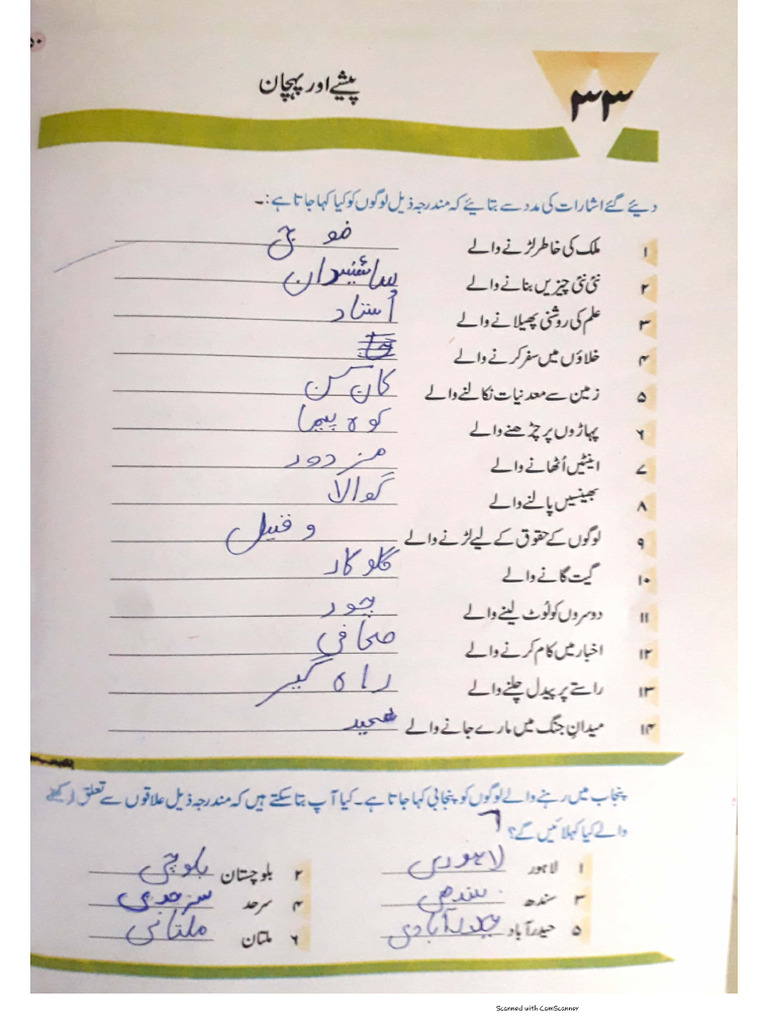 ۵۰
۳۳
پیشے اور پہچان
دیئے گئے اشارات کی مدد سے بتائیے کہ مندرجہ ذیل لوگوں کو کیا کہا جاتا ہے:۔
۱ ملک کی خاطر لڑنے والے فوجی
۲ نئی نئی چیزیں بنانے والے سائنسدان
۳ علم کی روشنی پھیلانے والے اُستاد
۴ خلاؤں میں سفر کرنے والے
۵ زمین سے معدنیات نکالنے والے کان کن
۶ پہاڑوں پر چڑھنے والے کوہ پیما
۷ اینٹیں اُٹھانے والے مزدور
۸ بھینسیں پالنے والے گوالا
۹ لوگوں کے حقوق کے لیے لڑنے والے وقیل
۱۰ گیت گانے والے گلوکار
۱۱ دوسروں کو لُوٹ لینے والے چور
۱۲ اخبار میں کام کرنے والے صحافی
۱۳ راستے پر پیدل چلنے والے راہ گیر
۱۴ میدانِ جنگ میں مارے جانے والے
پنجاب میں رہنے والے لوگوں کو پنجابی کہا جاتا ہے۔ کیا آپ بتا سکتے ہیں کہ مندرجہ ذیل علاقوں سے تعلق رکھنے
والے کیا کہلائیں گے؟
۱ لاہور لاہوری ۲ بلوچستان بلوچی
۳ سندھ سندھی ۴ سرحد سرحدی
۵ حیدرآباد حیدرآبادی ۶ ملتان ملتانی
Scanned with CamScanner